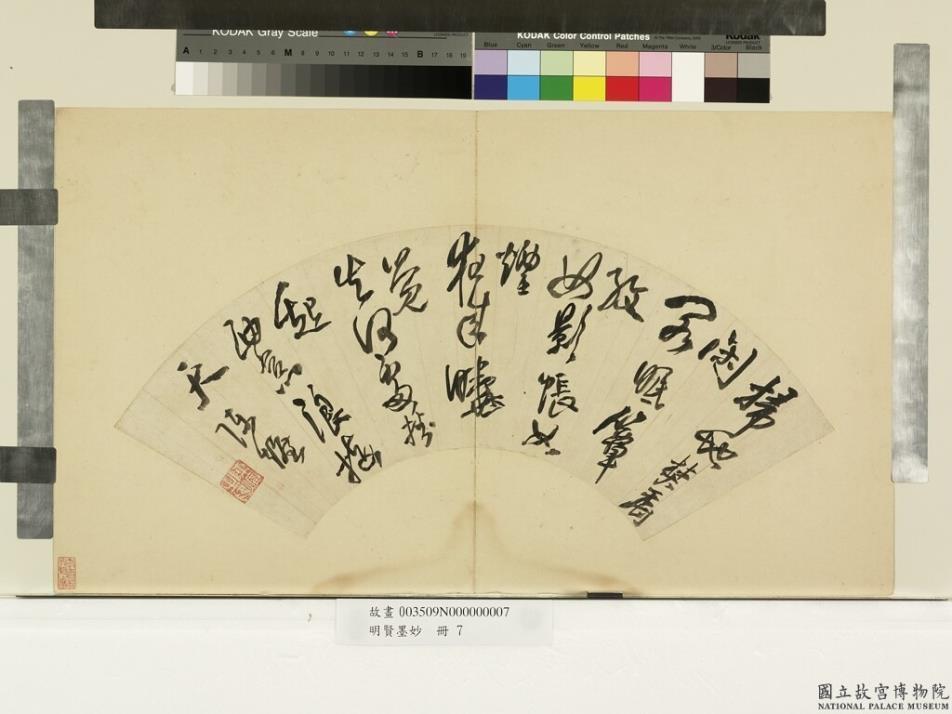 KODAK Gray Scale
A 1 2 3 4 5 6 M 8 9 10 11 12 13 14 15 B 17 18 19
KODAK Color Control Patches
Kodak
Blue Cyan Green Yellow Red Magenta White 3/Color Black
掃地焚香
閉
閣眠簟
紋
如影帳如
煙
客來
覺
知何處挂
起
西窗浪接
天
陳
故畫 003509N000000007
明賢墨妙 冊 7
國立故宮博物院
NATIONAL PALACE MUSEUM